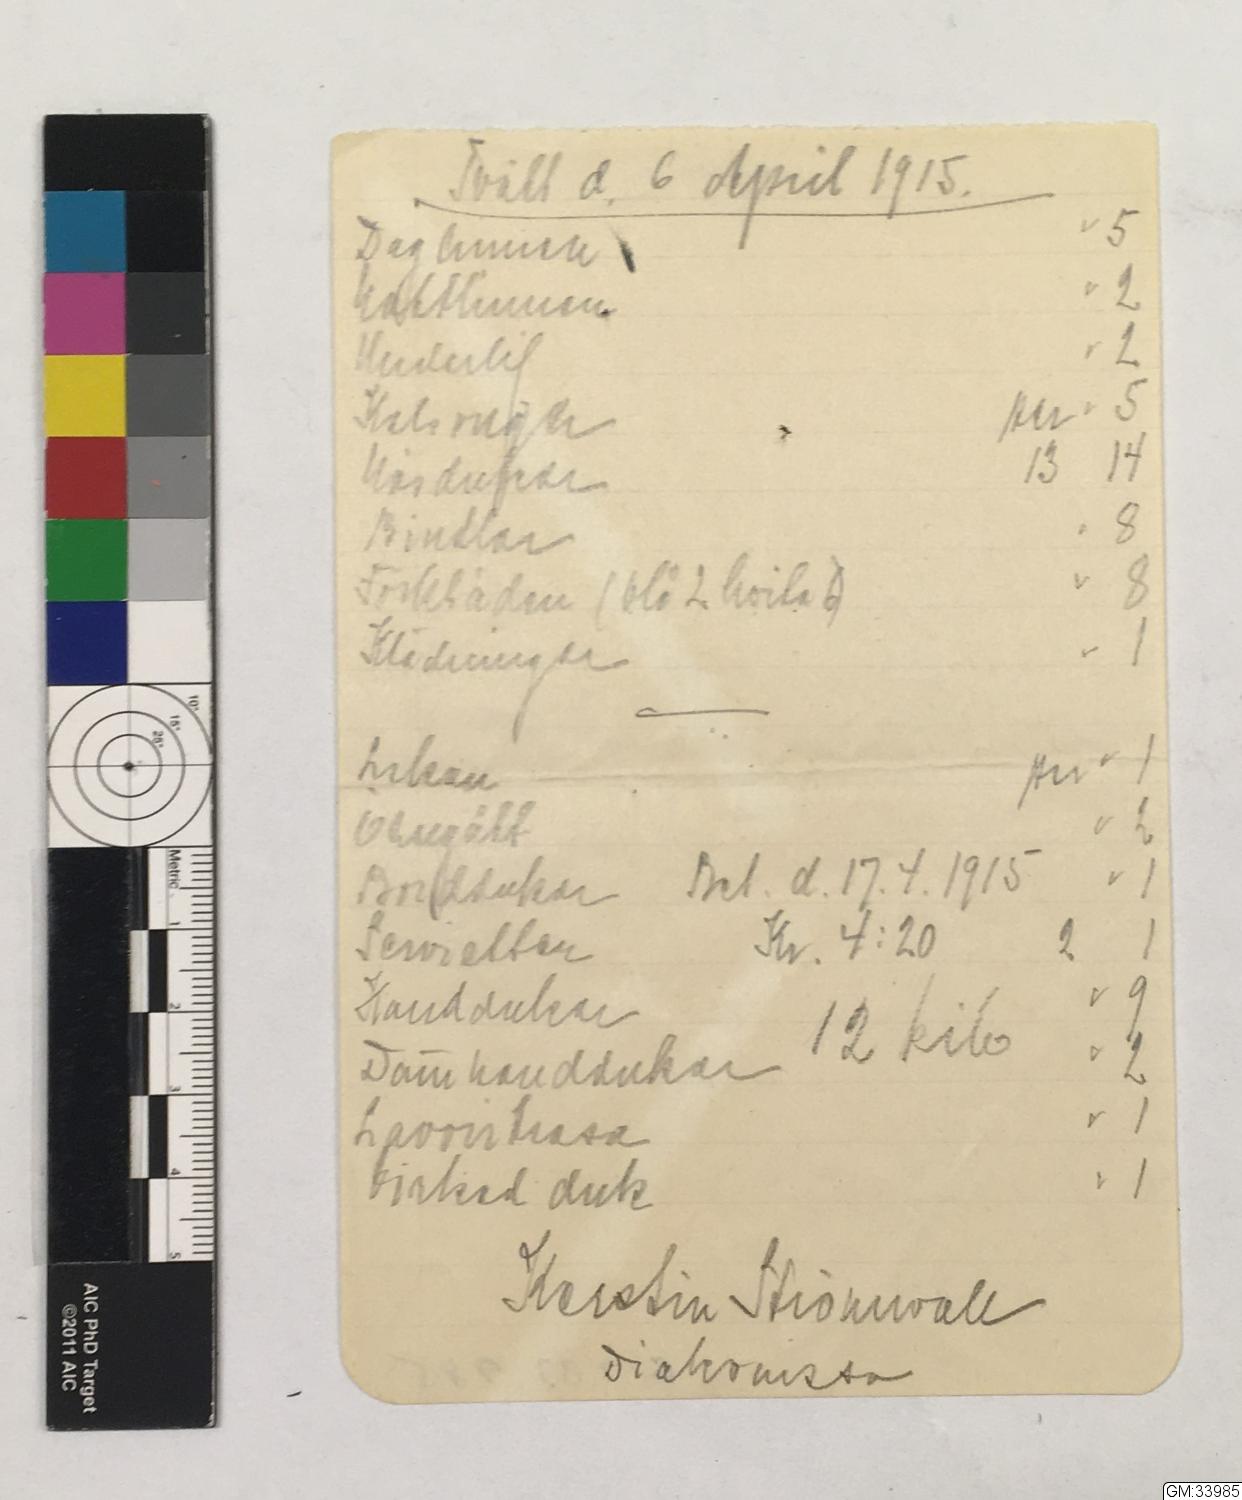 Tvätt d. 6 April 1915.
Daglinnen v 5
Nattlinnen v 2
Underlif v 2
Kalsonger par v 5
Näsdukar 13 14
Bindlar 8
Förkläden (blå 2 hvita 6) v 8
Klädningar v 1
Lakan par v 1
Örngått v 2
Borddukar Bet. d. 17.4.1915 v 1
Servietter Kr. 4:20 2 1
Handdukar v 9
12 kilo
Damhanddukar v 2
Lavoirtrasa v 1
Virkad duk v 1
Kerstin Strömvall
Diakonissa
AIC PhD Target
©2011 AIC
Metric
1
2
3
4
5
10°
15°
25°
GM:33985